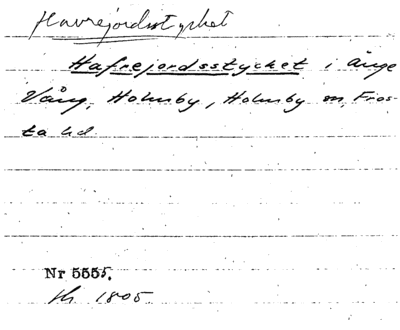 Havrejordsstycket
Hafrejordsstycket i änge
Vång, Holmby, Holmby sn, Fros-
ta hd
Nr 5555.
1805